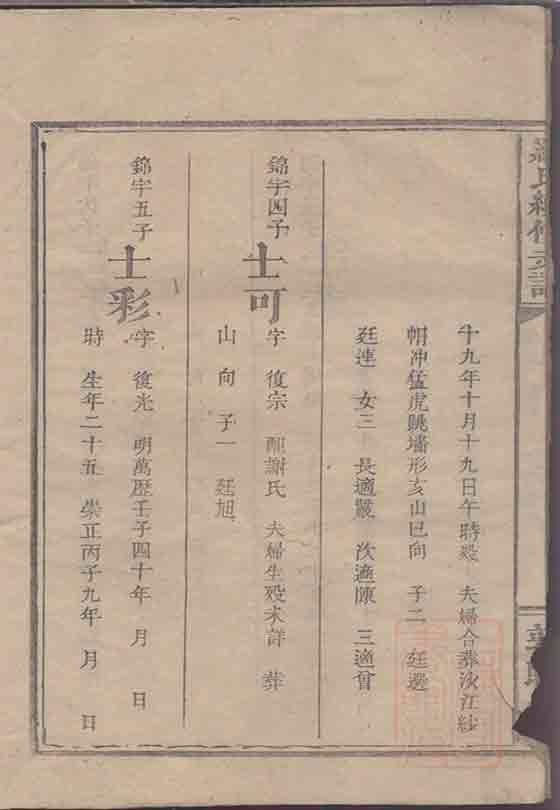 氏續修支譜
十九年十月十九日午時殁 夫婦合葬沙江紗
帽冲猛虎跳墻形亥山巳向 子二 廷選
廷連 女三 長適嚴 次適陳 三適曾
錦宇四子
士可
字 復宗 配謝氏 夫婦生殁未詳 葬
山 向 子一 廷旭
錦宇五子
士彩
字 復光 明萬歷壬子四十年 月 日
時 生年二十五 崇正丙子九年 月 日